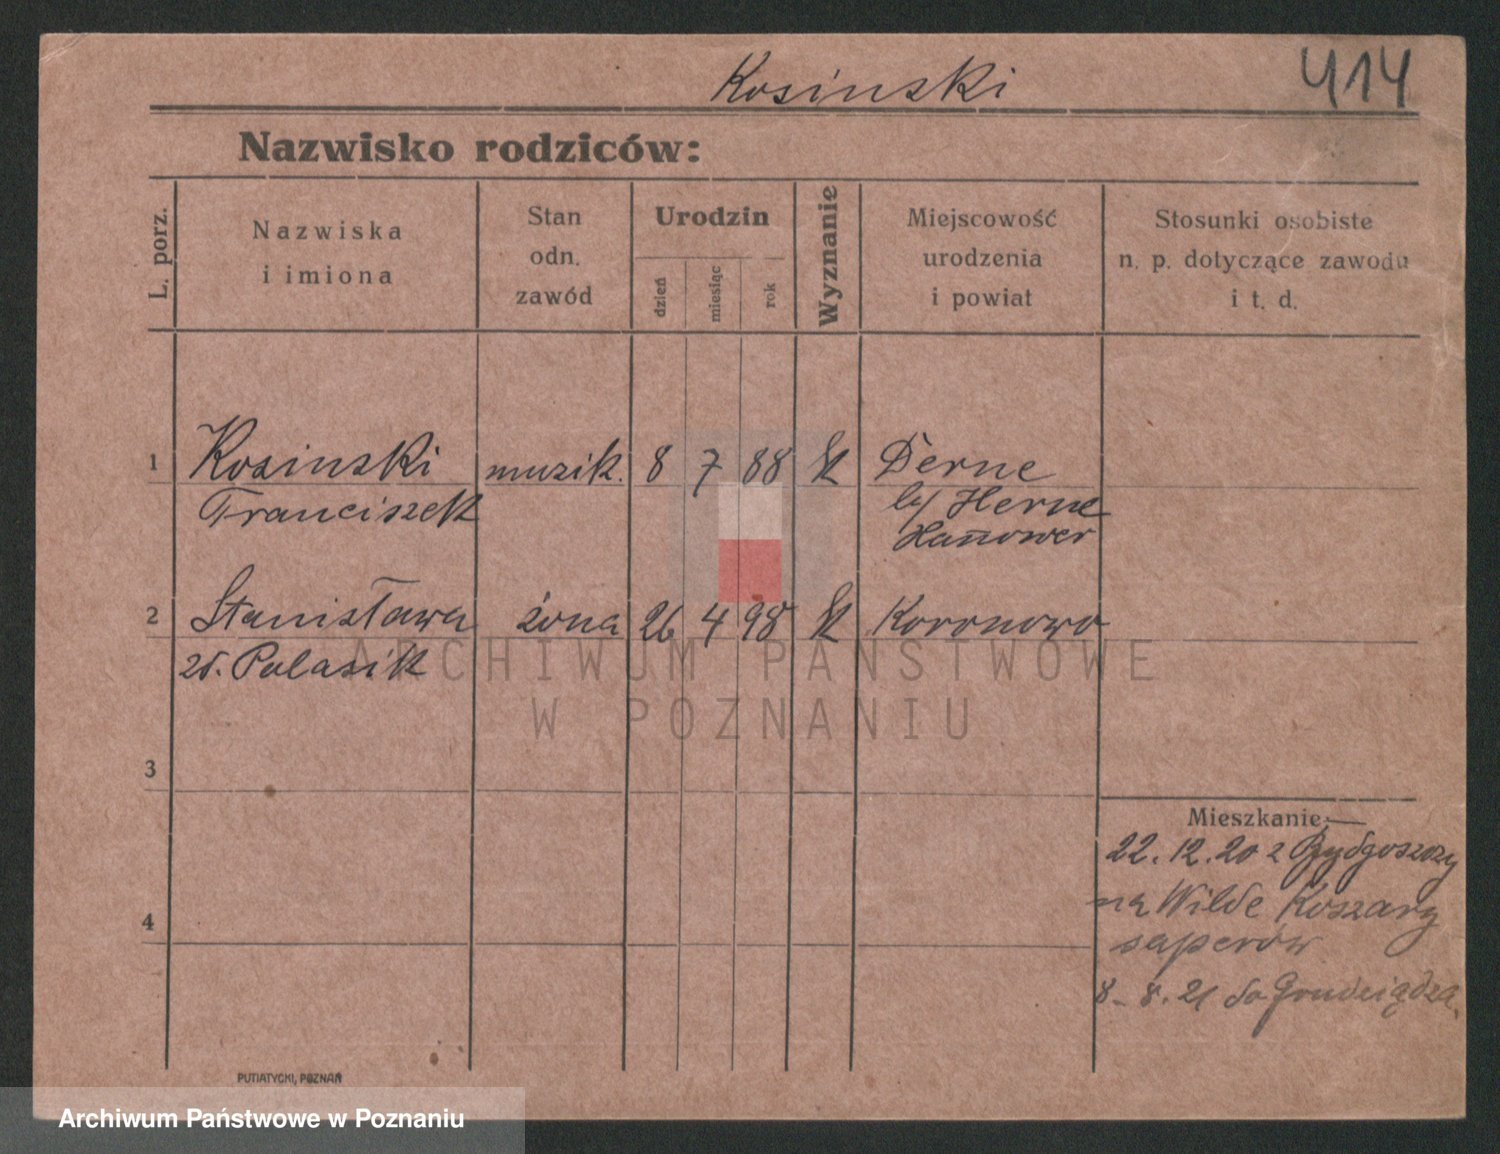 Kosinski 414
Nazwisko rodziców:
L. porz.
Nazwiska
i imiona
Stan
odn.
zawód
Urodzin
dzień
miesiąc
rok
Wyznanie
Miejscowość
urodzenia
i powiat
Stosunki osobiste
n. p. dotyczące zawodu
i t. d.
1 Kosinski muzik. 8 7 88 kt Derne
Franciszek b/ Herne
Hannower
2 Stanisława żona 26 4 98 kt Koronowo
zd. Palasik
ARCHIWUM PAŃSTWOWE
W POZNANIU
3
Mieszkanie:
22.12.20 z Bydgoszczy
na Wilde Koszary
4
saperów
8-8.21 do Grudziądza.
PUTIATYCKI, POZNAŃ
Archiwum Państwowe w Poznaniu